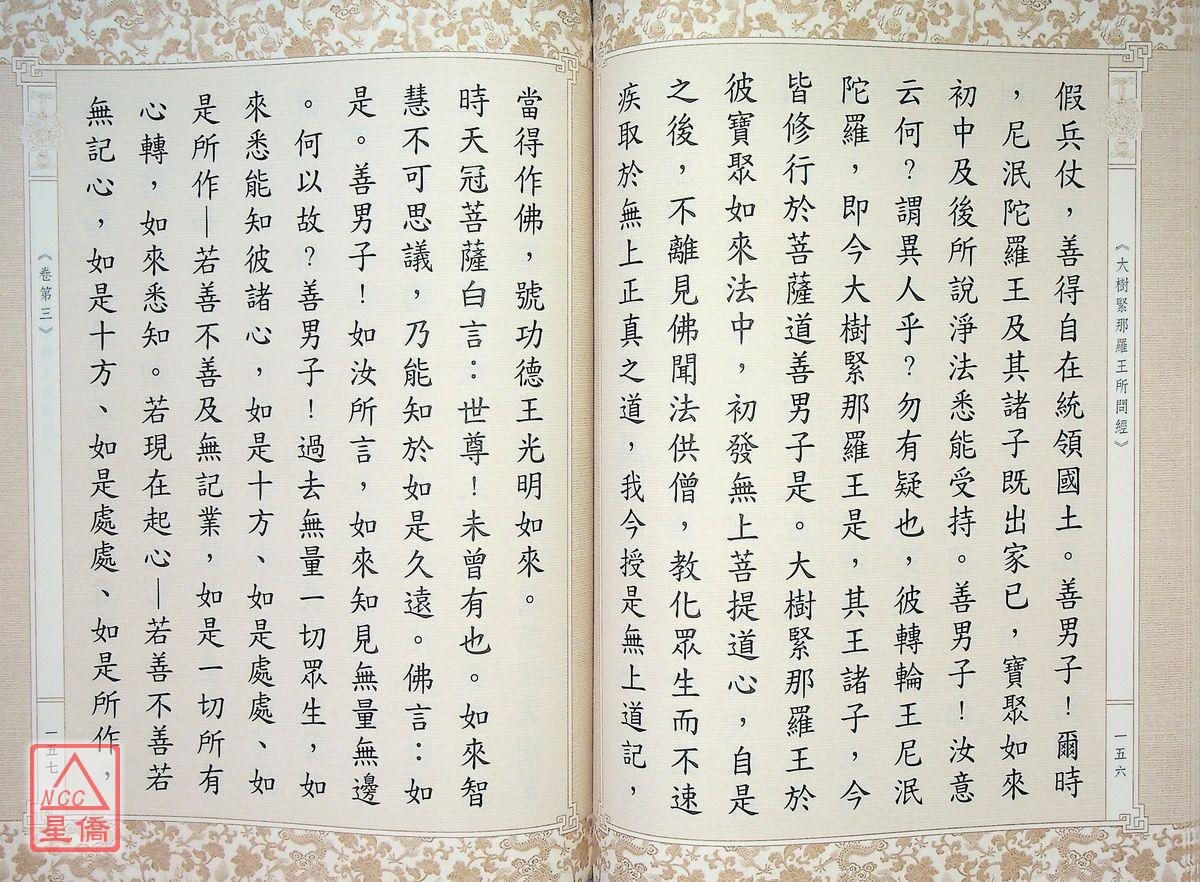 《大樹緊那羅王所問經》
一五六
假兵仗，善得自在統領國土。善男子！爾時
，尼泯陀羅王及其諸子既出家已，寶聚如來
初中及後所說淨法悉能受持。善男子！汝意
云何？謂異人乎？勿有疑也，彼轉輪王尼泯
陀羅，即今大樹緊那羅王是，其王諸子，今
皆修行於菩薩道善男子是。大樹緊那羅王於
彼寶聚如來法中，初發無上菩提道心，自是
之後，不離見佛聞法供僧，教化眾生而不速
疾取於無上正真之道，我今授是無上道記，
當得作佛，號功德王光明如來。
時天冠菩薩白言：世尊！未曾有也。如來智
慧不可思議，乃能知於如是久遠。佛言：如
是。善男子！如汝所言，如來知見無量無邊
。何以故？善男子！過去無量一切眾生，如
來悉能知彼諸心，如是十方、如是處處、如
是所作—若善不善及無記業，如是一切所有
心轉，如來悉知。若現在起心—若善不善若
無記心，如是十方、如是處處、如是所作，
《卷第三》
一五七
NCC
星僑